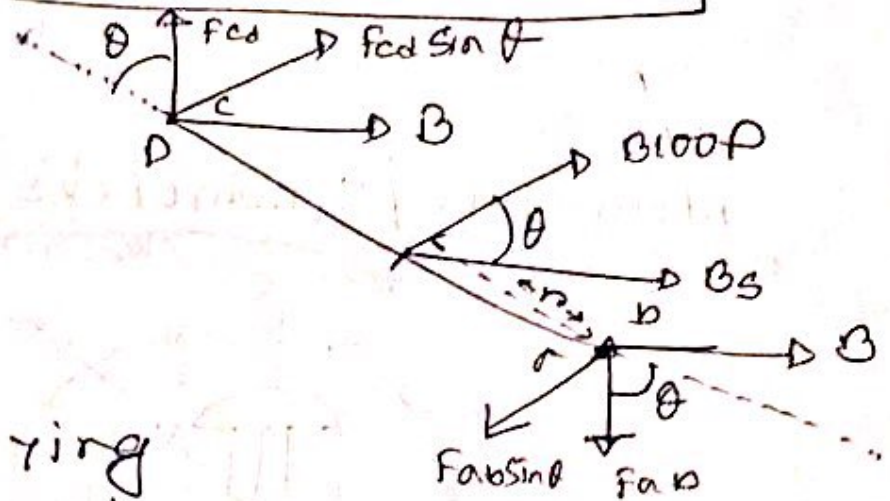 θ Fcd Fcd Sin θ
c
D B
Bloop
θ
Bs
r b
r B
θ
ying
Fabsinθ Fab